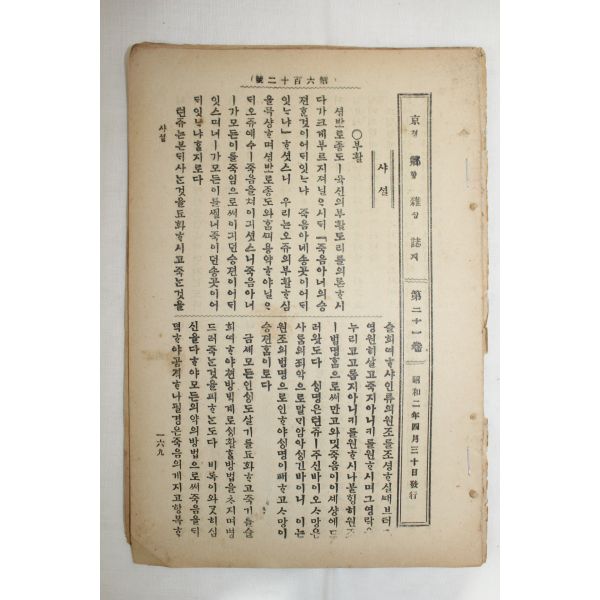 京경 鄕향 雜잡 誌지 第二十一卷 昭和二年四月三十日發行
(第六百十二號)
샤셜
○부활
셩바로종도ㅣ육신의부활도리를의론ᄒᆞ시
다가크게부르지져닐ᄋᆞ시ᄃᆡ『죽음아너의승
젼ᄒᆞᆯ것이어ᄃᆡ잇ᄂᆞ냐 죽음아네송곳이어ᄃᆡ
잇ᄂᆞ냐』ᄒᆞ셧스니 우리는오쥬의부활ᄒᆞ심
을묵샹ᄒᆞ며셩바로종도와ᄒᆞᆷᄭᅴ용약ᄒᆞ야닐ᄋᆞ
ᄃᆡ오쥬예수ㅣ죽음을쳐이긔셧스니죽음아너
ㅣ가모든이를죽임으로써이긔던승젼이어ᄃᆡ
잇스며너ㅣ가모든이를ᄶᅵᆯ너죽이던송곳이어
ᄃᆡ잇ᄂᆞ냐ᄒᆞᆯ지로다
텬쥬는본ᄃᆡ사ᄂᆞᆫ것을됴화ᄒᆞ시고죽ᄂᆞᆫ것을
슬희여ᄒᆞ샤인류의원조를조셩ᄒᆞ심ᄯᅢ브터
영원히살고죽지아니키를원ᄒᆞ시며그영락을
누리고고롭지아니키를원ᄒᆞ시나불ᄒᆡᆼ히원조
ㅣ범명ᄒᆞᆷ으로써만고와밋죽음이이셰샹에드
러왓도다 ᄉᆡᆼ명은텬쥬ㅣ주신바이오ᄉᆞ망은
사ᄅᆞᆷ의죄악으로말ᄆᆡ암아ᄉᆡᆼ긴바이니 이는
원조의범명으로인ᄒᆞ야ᄉᆡᆼ명이패ᄒᆞ고ᄉᆞ망이
승젼ᄒᆞᆷ이로다
금셰모든인ᄉᆡᆼ도살기를됴화ᄒᆞ고죽기를슬
희여ᄒᆞ야쳔방ᄇᆡᆨ계로ᄉᆡᆼ활ᄒᆞᆯ방법을ᄎᆞ지며병
드러죽는것을피ᄒᆞᄂᆞᆫ도다 비록이와ᄀᆞᆺ히심
신을다ᄒᆞ야모든의약의방법으로써죽음을ᄃᆡ
뎍ᄒᆞ야공격ᄒᆞ나필경은죽음의게지고항복ᄒᆞ
샤셜
一六九